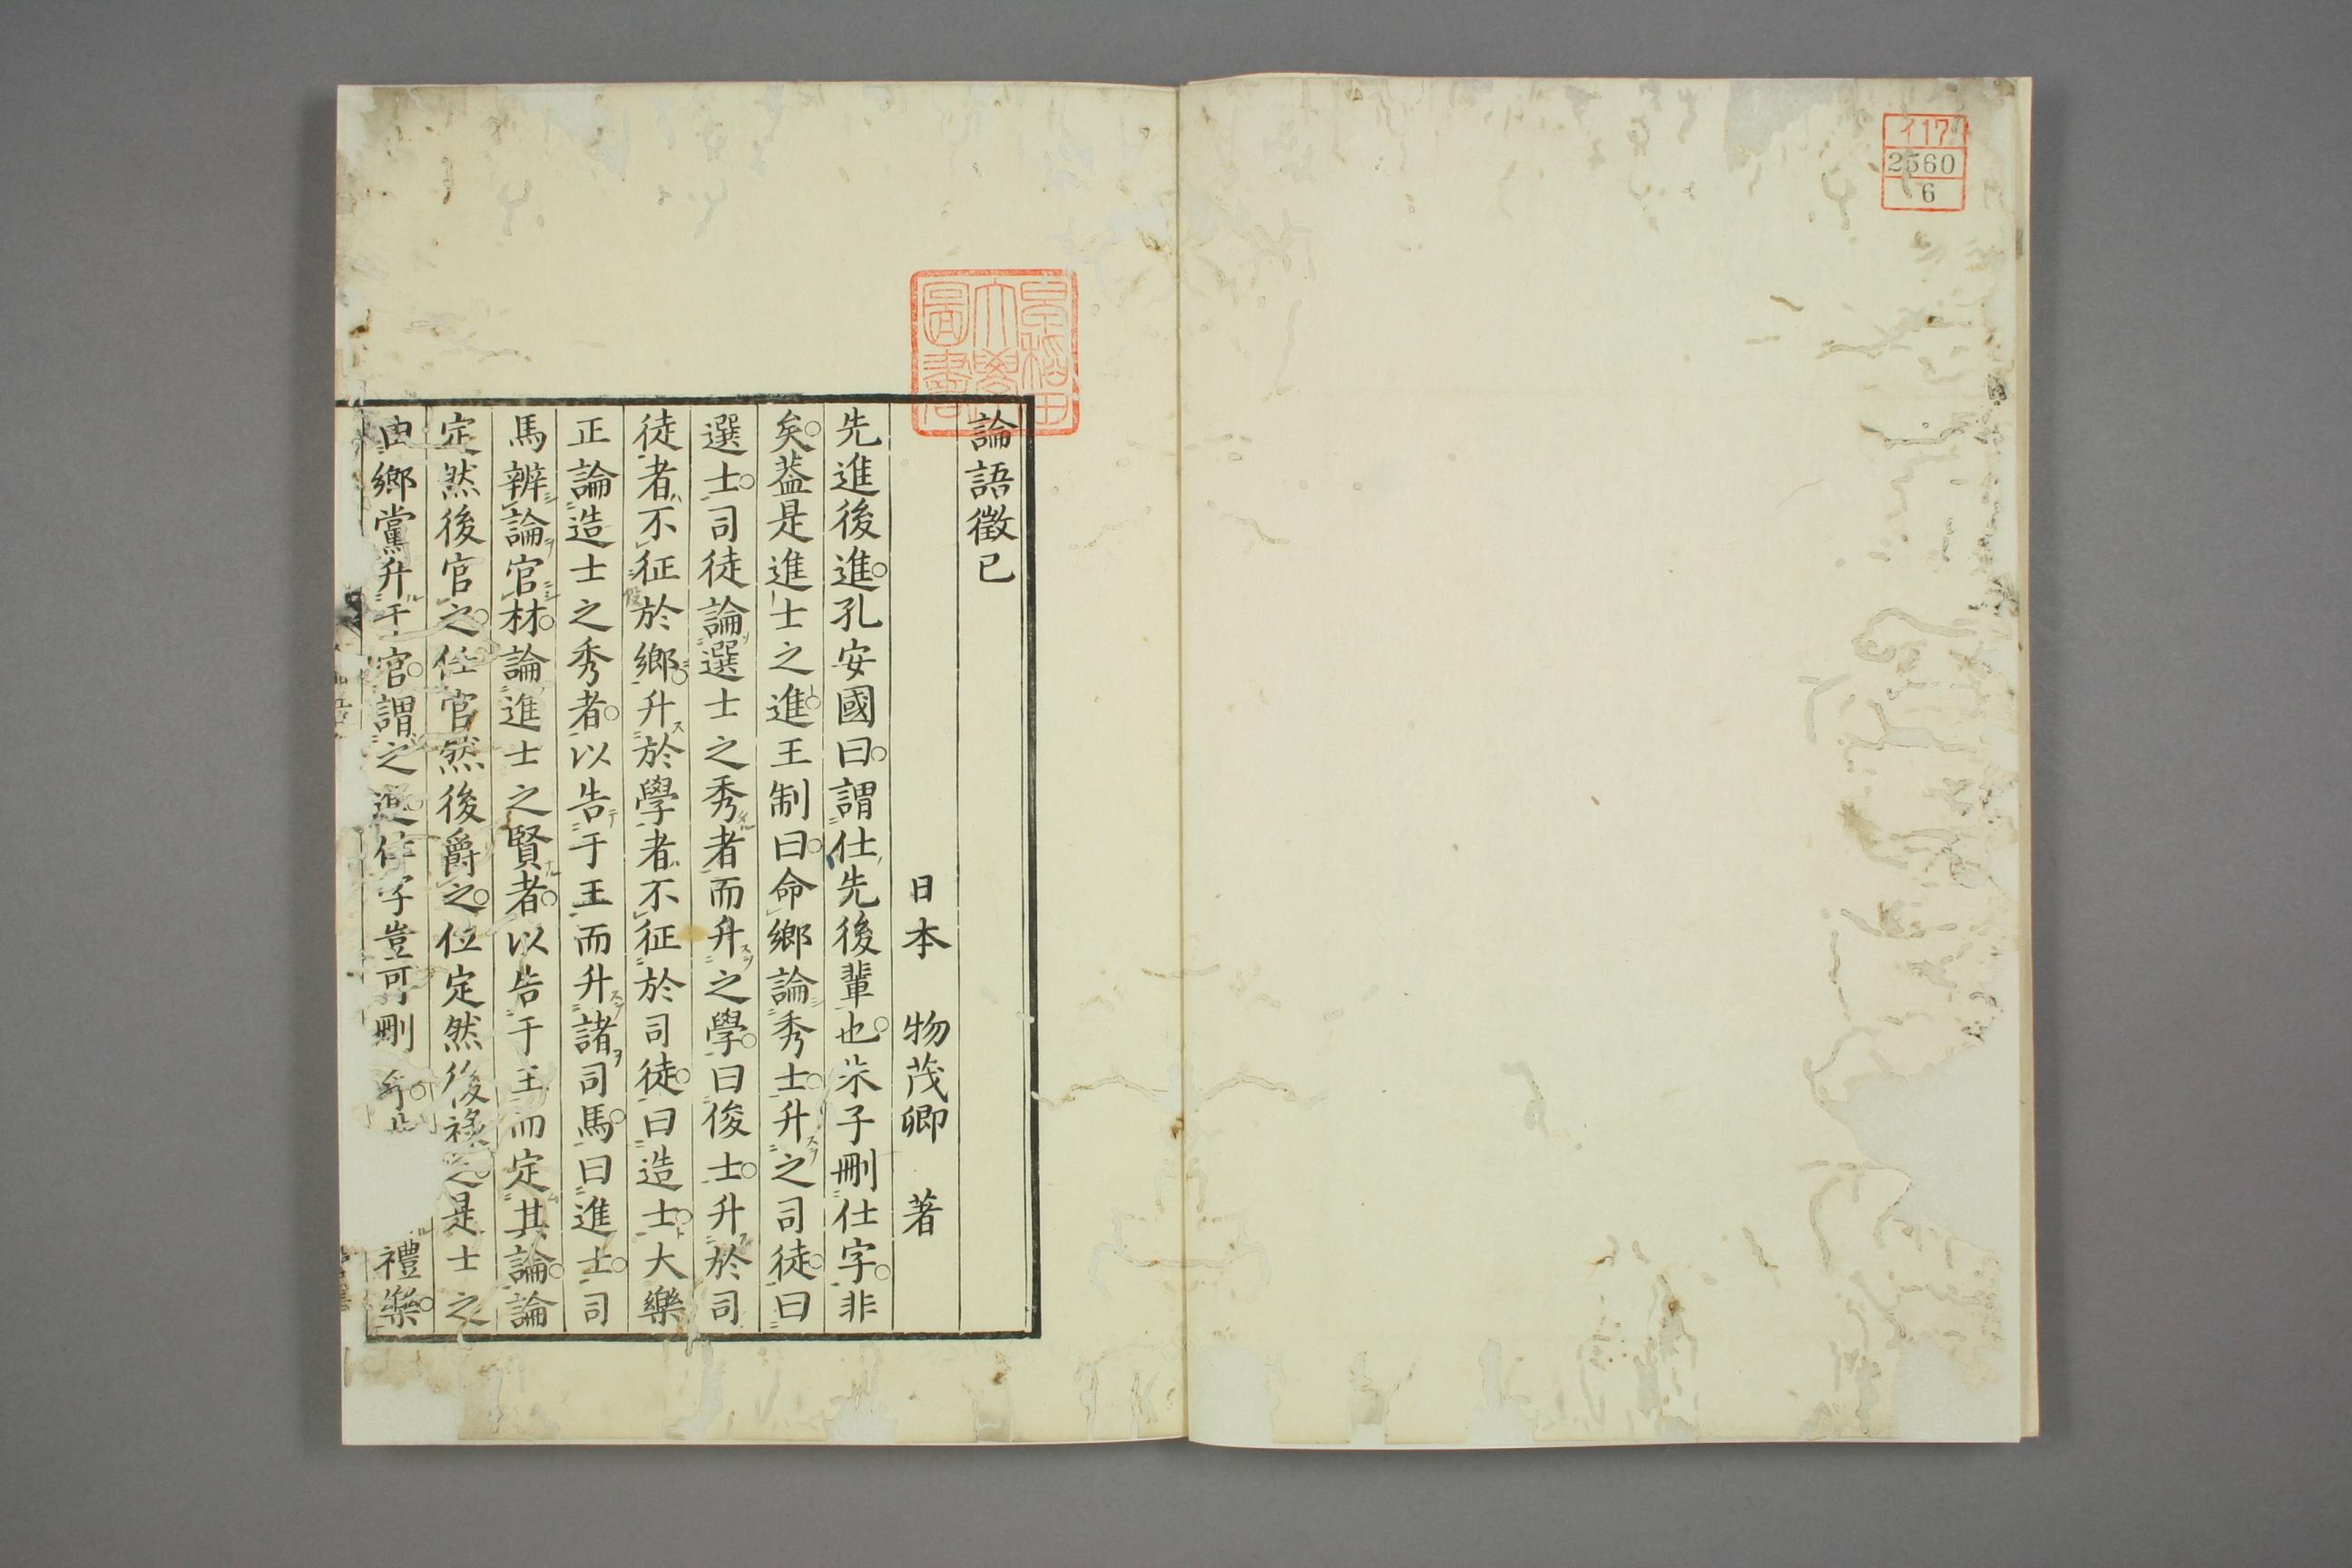 イ17
2560
6
早稲田
大學
圖書
論語徵己
日本 物茂卿 著
先進後進○孔安國曰○謂仕先後輩也○朱子刪仕字○非
矣○葢是進士之進○王制曰○命鄉論秀士○升之司徒○曰
選士○司徒論選士之秀者而升之學○曰俊士○升於司
徒者不征於鄉○升於學者不征於司徒○曰造士○大樂
正論造士之秀者○以告于王而升諸司馬○曰進士○司
馬辨論官材○論進士之賢者○以告于王而定其論○論
定然後官之○任官然後爵之○位定然後祿之○是士之
由鄉黨升于官○謂之進○仕字豈可刪乎○
禮樂○